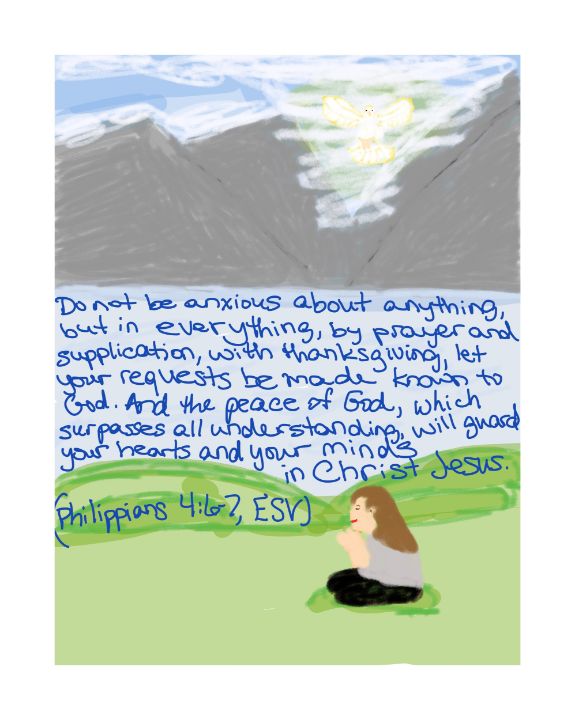 Do not be anxious about anything,
but in everything, by prayer and
supplication, with thanksgiving, let
your requests be made known to
God. And the peace of God, which
surpasses all understanding, will guard
your hearts and your minds
in Christ Jesus.
(Philippians 4:6-7, ESV)